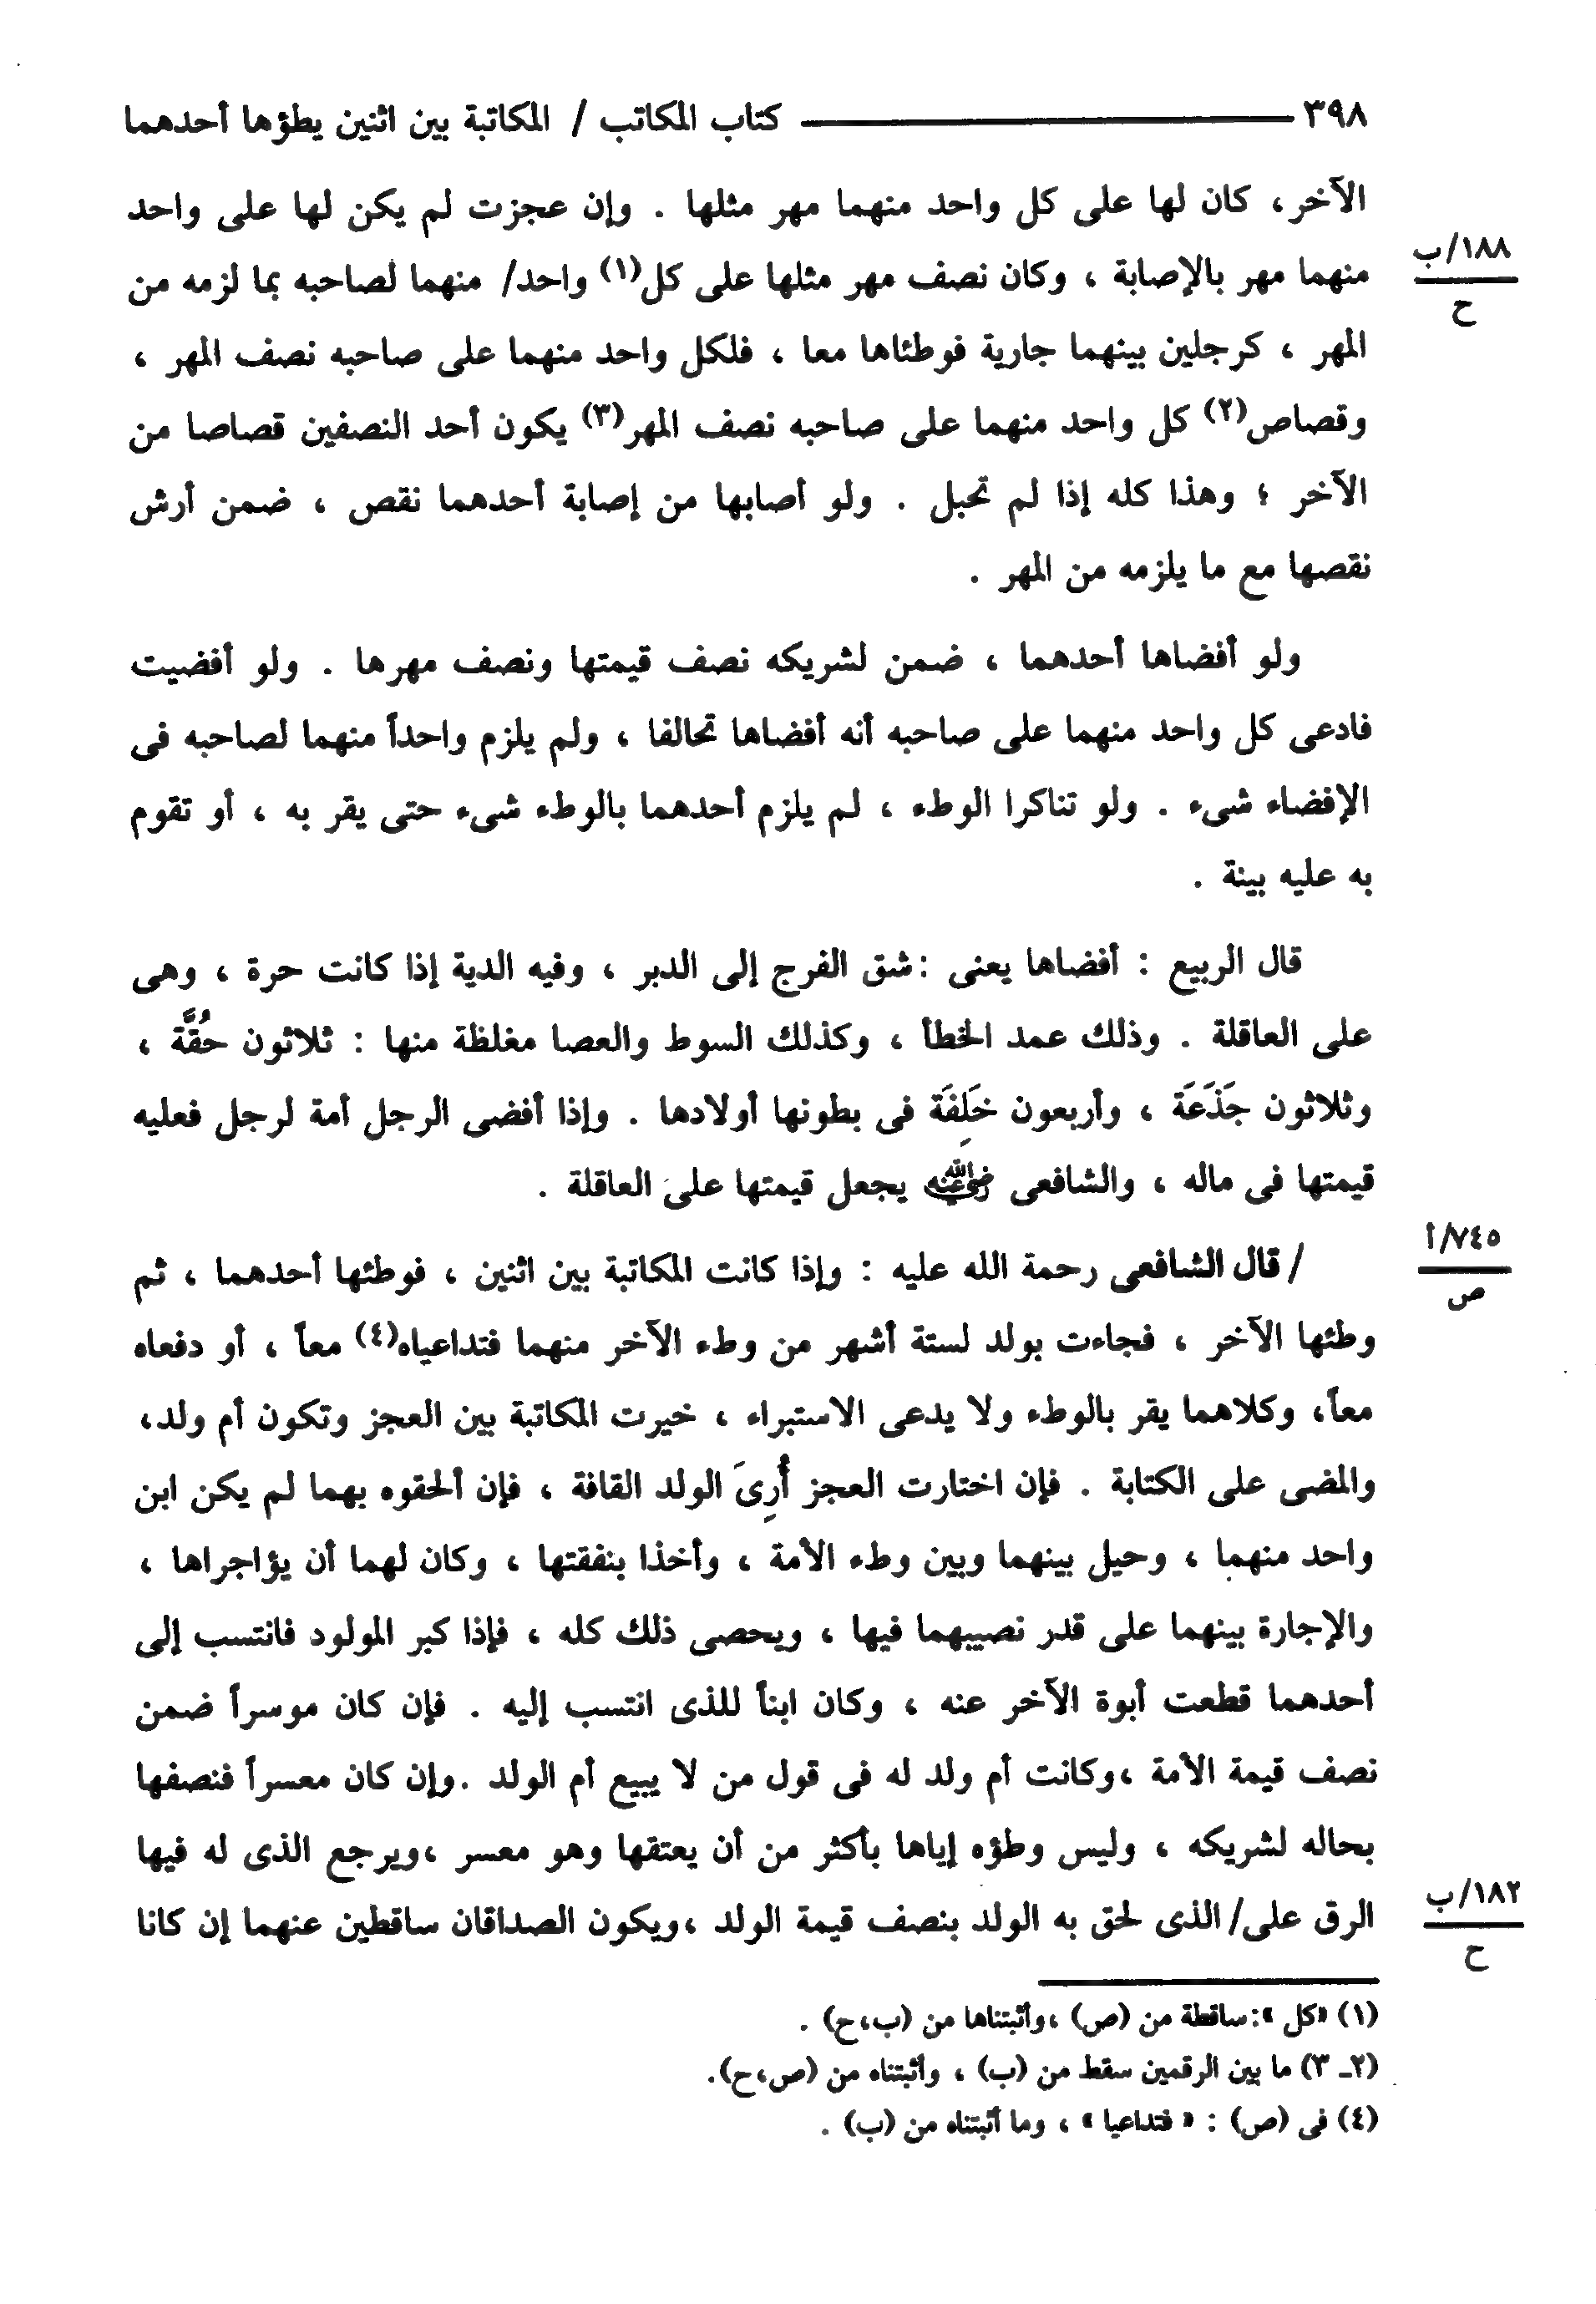 ٣٩٨ كتاب المكاتب / المكاتبة بين اثنين يطؤها أحدهما
الآخر، كان لها على كل واحد منهما مهر مثلها . وإن عجزت لم يكن لها على واحد
منهما مهر بالإصابة ، وكان نصف مهر مثلها على كل(١) واحد/ منهما لصاحبه بما لزمه من
١٨٨/ب
ح
المهر ، كرجلين بينهما جارية فوطئاها معا ، فلكل واحد منهما على صاحبه نصف المهر ،
وقصاص(٢) كل واحد منهما على صاحبه نصف المهر(٣) يكون أحد النصفين قصاصا من
الآخر ؛ وهذا كله إذا لم تحبل . ولو أصابها من إصابة أحدهما نقص ، ضمن أرش
نقصها مع ما يلزمه من المهر .
ولو أفضاها أحدهما ، ضمن لشريكه نصف قيمتها ونصف مهرها . ولو أفضيت
فادعى كل واحد منهما على صاحبه أنه أفضاها تحالفا ، ولم يلزم واحداً منهما لصاحبه فى
الإفضاء شىء . ولو تناكرا الوطء ، لم يلزم أحدهما بالوطء شىء حتى يقر به ، أو تقوم
به عليه بينة .
قال الربيع : أفضاها يعنى :شق الفرج إلى الدبر ، وفيه الدية إذا كانت حرة ، وهى
على العاقلة . وذلك عمد الخطأ ، وكذلك السوط والعصا مغلظة منها : ثلاثون حُقَّة ،
وثلاثون جَذَعَة ، وأربعون خَلِفَة فى بطونها أولادها . وإذا أفضى الرجل أمة لرجل فعليه
قيمتها فى ماله ، والشافعى رضي الله عنه يجعل قيمتها على العاقلة .
/ قال الشافعى رحمة الله عليه : وإذا كانت المكاتبة بين اثنين ، فوطئها أحدهما ، ثم
٧٤٥/أ
ص
وطئها الآخر ، فجاءت بولد لستة أشهر من وطء الآخر منهما فتداعياه(٤) معاً ، أو دفعاه
معاً، وكلاهما يقر بالوطء ولا يدعى الاستبراء ، خيرت المكاتبة بين العجز وتكون أم ولد،
والمضى على الكتابة . فإن اختارت العجز أُرِىَ الولد القافة ، فإن ألحقوه بهما لم يكن ابن
واحد منهما ، وحيل بينهما وبين وطء الأمة ، وأخذا بنفقتها ، وكان لهما أن يؤاجراها ،
والإجارة بينهما على قدر نصيبهما فيها ، ويحصى ذلك كله ، فإذا كبر المولود فانتسب إلى
أحدهما قطعت أبوة الآخر عنه ، وكان ابناً للذى انتسب إليه . فإن كان موسراً ضمن
نصف قيمة الأمة ،وكانت أم ولد له فى قول من لا يبيع أم الولد .وإن كان معسراً فنصفها
بحاله لشريكه ، وليس وطؤه إياها بأكثر من أن يعتقها وهو معسر ،ويرجع الذى له فيها
الرق على/ الذى لحق به الولد بنصف قيمة الولد ،ويكون الصداقان ساقطين عنهما إن كانا
١٨٢/ب
ح
(١) «كل »:ساقطة من (ص) ،وأثبتناها من (ب،ح) .
(٢ـ ٣) ما بين الرقمين سقط من (ب) ، وأثبتناه من (ص،ح).
(٤) فى (ص) : « فتداعيا » ، وما أثبتناه من (ب) .